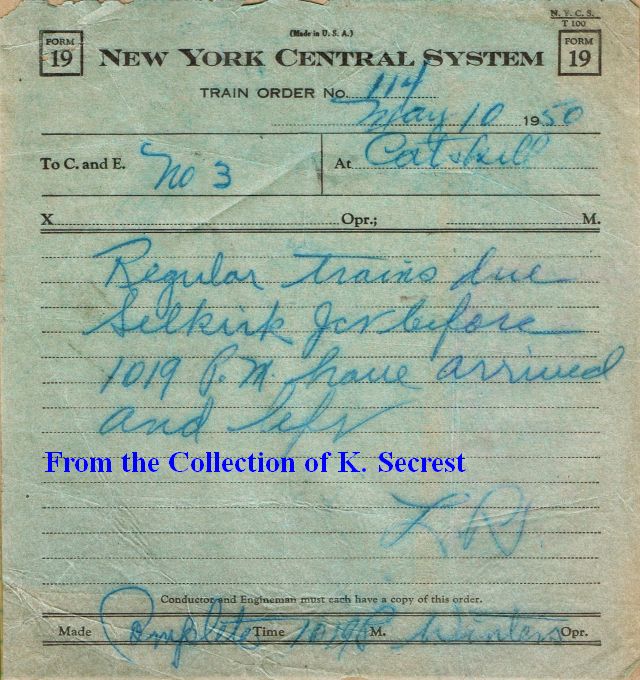 (Made in U.S.A.)
N. Y. C. S.
T 100
FORM
19
NEW YORK CENTRAL SYSTEM
FORM
19
TRAIN ORDER No. 114
May 10 1950
To C. and E. No 3 At Catskill
X Opr.; M.
Regular trains due
Selkirk Jct before
1019 P.M. have arrived
and left
From the Collection of K. Secrest
Conductor and Engineman must each have a copy of this order.
Made Complete Time 1019 P M. Winters Opr.